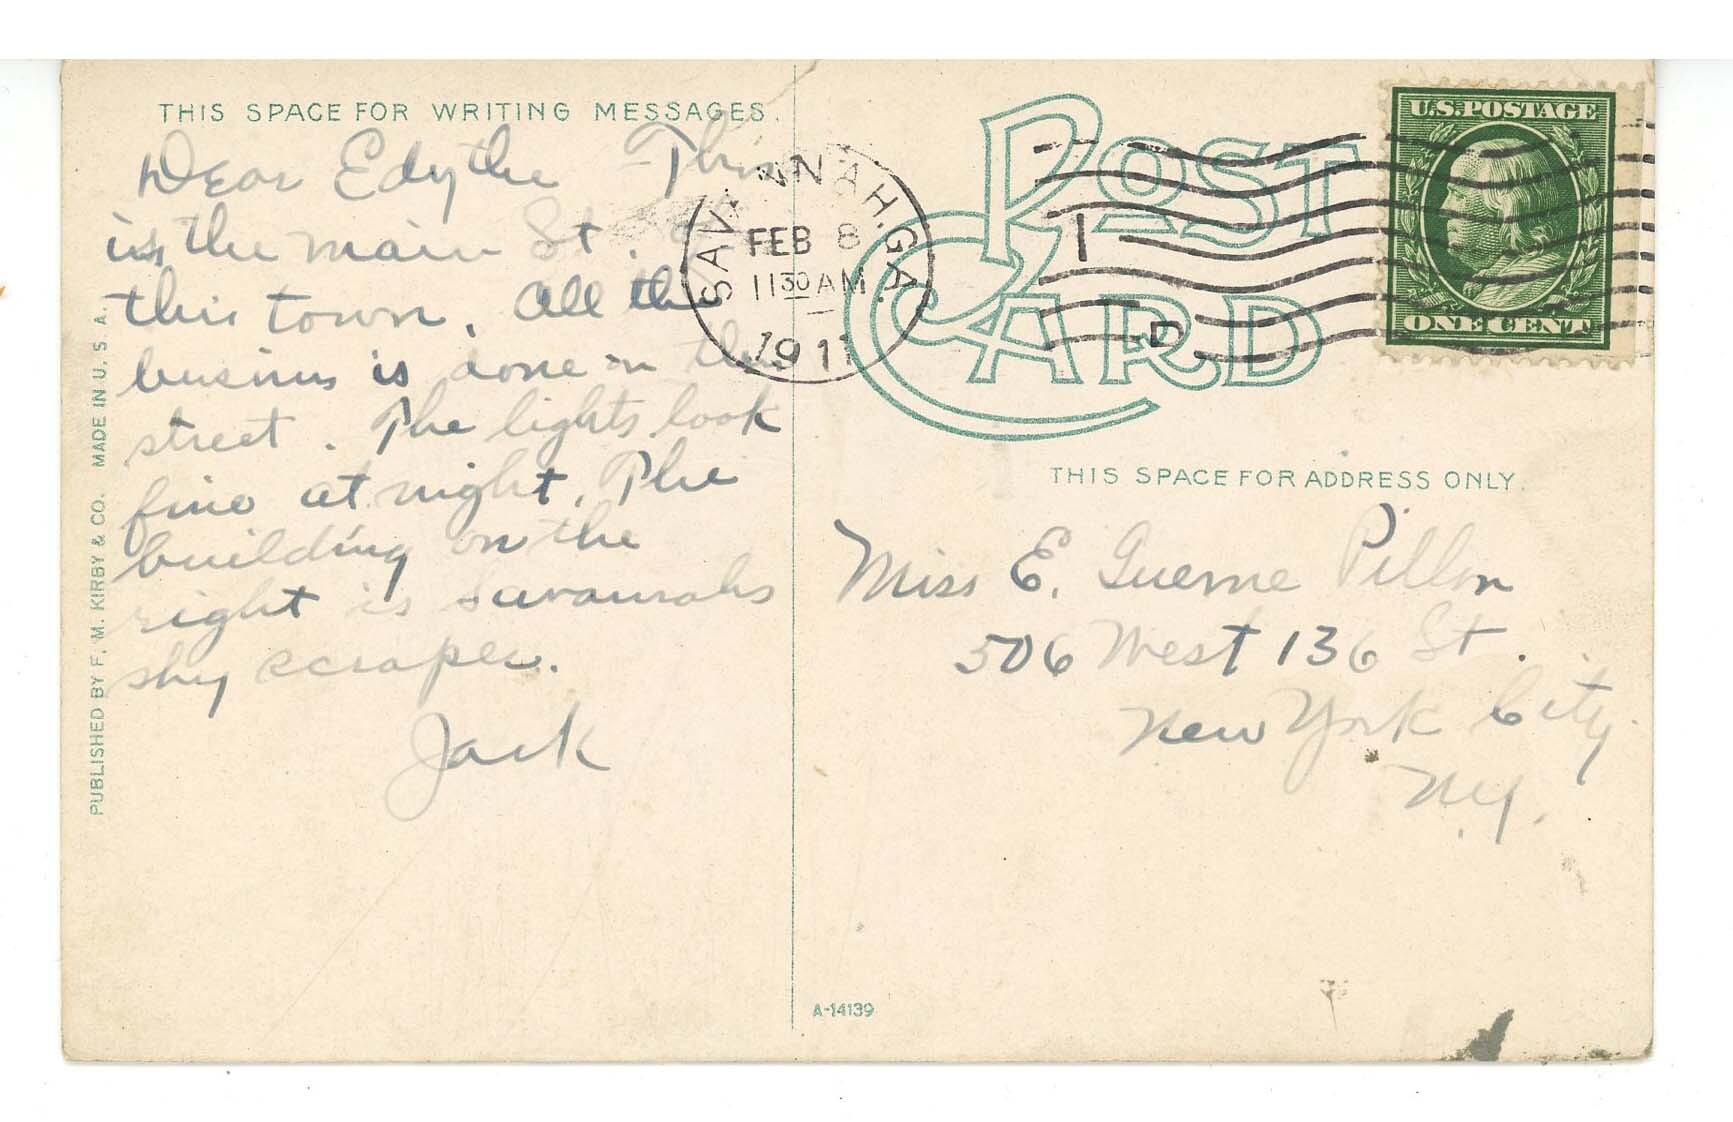 THIS SPACE FOR WRITING MESSAGES.
Dear Edythe This
is the main St. of
this town. All the
business is done on this
street. The lights look
fine at night. The
building on the
right is Savannahs
sky scraper.
Jack
PUBLISHED BY F. M. KIRBY & CO. MADE IN U. S. A.
SAVANNAH, GA.
FEB 8
11 30 AM
1911
1
D
POST CARD
U.S. POSTAGE
ONE CENT
THIS SPACE FOR ADDRESS ONLY.
Miss E. Pillon
506 West 136 St.
New York City
N.Y.
A-14139